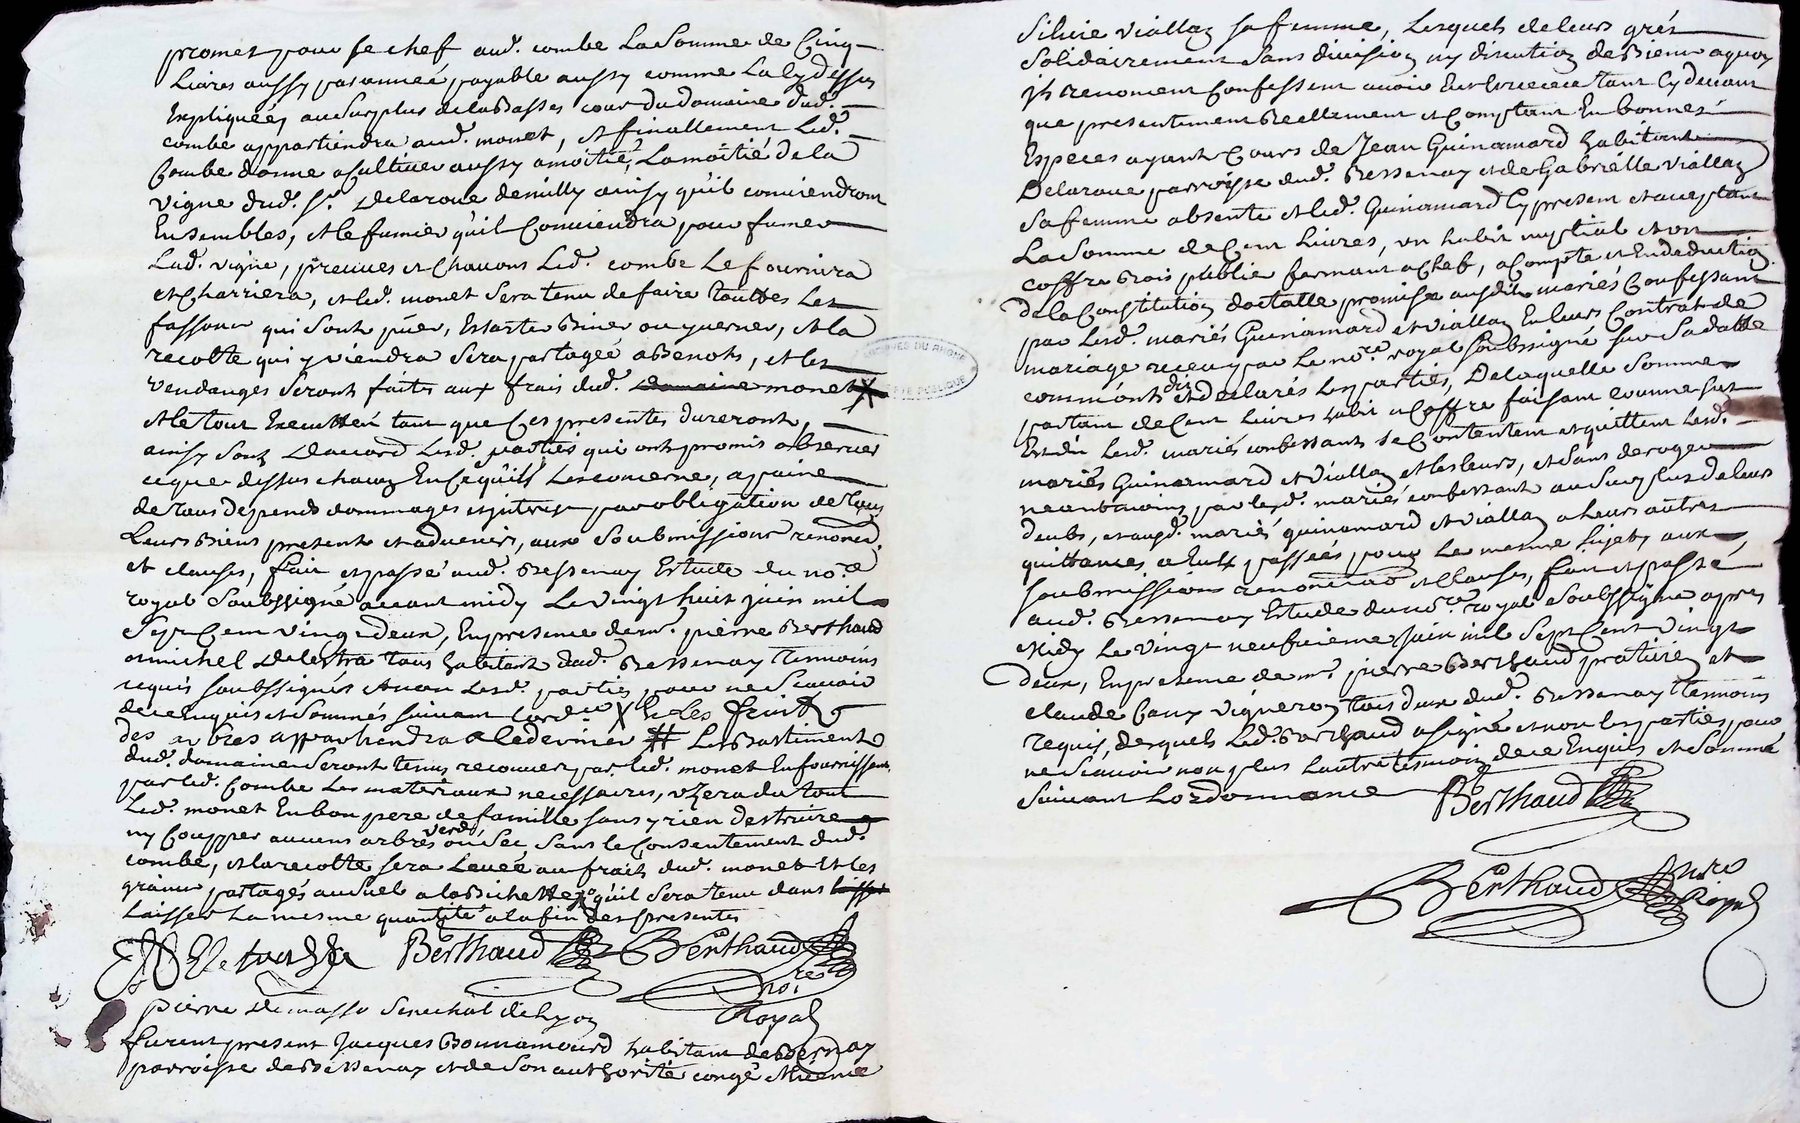 promet pour se chef aud. combe La Somme de Cinq
Livres aussy par année payable aussy comme La cy dessus
Expliquéé, au Surplus de la Basses cour du domaine dud.
combe appartiendra aud. monet, et finallement Led.
Combe donne a Cultiver aussy a moitié, La moitié de la
vigne dud. Sr. Delaroue de milly ainsy qu'il conviendront
Ensembles, et le fumier qu'il Conviendra pour fumer
Lad. vigne, preuves et Chavons Led. combe Le fournira
et Charriera, et led. monet Sera tenu de faire Touttes Les
fassons qui Sont puer, Essarter Biner ou querner, et la
recolte qui y viendra Sera partagéé a Benots, et les
vendanges Seront faites aux frais dud. domaine monet X
et le tout Executteré tant que Ces presentes dureront,
ainsy Sont D'accord Lesd. parties qui ont promis observer
ce que dessus chacun En Ce qu'ils Les concerne, a paine
de Tous depends dommages et jntrest par obligation de Tous
Leurs Biens present et advenir, aux Soubmissions renoncon.
et clauses, fait et passé aud. Bessenay Estude du nore.
royal Soubssigné avant midy Le vingt huit juin mil
Sept Cent vingt deux, En presence de mr. pierre Berthaud
et michel Delestra Tous habitant dud. Bessenay Temoins
requis soubssignés et non Lesd. parties pour ne Scavoir
de ce Enquis et Sommés suivant Lord.ce X Et Les fruits
des arbres appartiendra a le dernier # Les Bastiments
dud. domaine Seront tenus recouvert par led. monet En fournissent
par led. Combe Les materiaux necessaires, uzera du tout
Led. monet En bon pere de famille sans y rien destruire
ny Coupper aucuns arbres verd ou Sec, Sans le Consentement dud.
combe, et la recolte sera Levéé au frais dud. monet Et les
grains partagés au Suel a la Bichette, qu'il Sera tenu dans laisser
Laisser La mesme quantité a la fin des presentes
Delestra Berthaud Berthaud
nore
Royal
pierre De masso Senechal de Lyon
furent present Jacques Bonnamourd habitant de Bernay
parroisse de Bessenay et de Son authorité congé et Licence
Silvie viallon sa femme, Lesquels de leurs grés
Solidairement Sans division ny discution de Biens a quoy
jls renoncent Confessent avoir Eu et receu tant Cy devant
que presentement Reellement et Comptant En bonnes
Especes ayant Cours de Jean Guinamard habitant
Delaroue parroisse dud. Bessenay et de Gabrielle viallon
Sa femme absente et led. Guinamard Cy present et acceptant
La Somme de Cent Livres, un habit nuptial et un
coffre Bois publie fermant a Clef, a Compte et En deduction
de la Constitution dottalle promise ausdits mariés Confessant
par Lesd. mariés Guinamard et viallon En leurs Contrat de
mariage receu par Le nore royal Soubssigné sur Sa datte
comm'ont dit et declarés Les parties, De laquelle Somme
partant de Cent Livres habit et Coffre faisant comme sus
Est dit Lesd. mariés confessants Se Contentent et quittent Lesd.
mariés Guinamard et viallon et les leurs, et Sans deroger
neantmoins par lesd. mariés confessant au Surplus de leurs
deubs, et ausd. mariés guinamard et viallon a leurs autres
quittances a Eulx passéés pour Le mesme Sujet, aux
soubmissions renoncions et Clauses, fait et passé
aud. Bessenay Estude du nore. royal Soubssigné apres
Midy Le vingt neufvieme juin mil Sept Cent vingt
deux, En presence de mr. pierre Berthaud praticien et
claude Cany vigneron tous deux dud. Bessenay Temoins
requis, desquels Led. Berthaud a Signé et non les parties pour
ne Scavoir non plus L'autre temoin de ce Enquis et Sommé
Suivant Lordonnance Berthaud
Berthaud nore
Royal
ARCHIVES DU RHONE